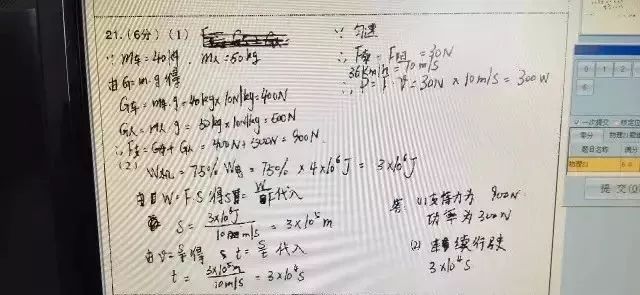 21.(6分)(1)
∵ m车=40kg, m人=50kg
由G=m·g得
G车=m车·g=40kg×10N/kg=400N
G人=m人·g=50kg×10N/kg=500N
∴F支=G车+G人=400N+500N=900N
(2)
W机=75% W电=75%×4×10⁶J=3×10⁶J
由W=F·S得S=W/F代入
S= 3×10⁶J/10m/s =3×10⁵m
由v=S/t得 t=S/v代入
t= 3×10⁵m/10m/s =3×10⁴s
∵匀速
∴F牵=F阻=30N
36km/h=10m/s
∴P=F·v=30N×10m/s=300W
答:(1)支持力为900N
功率为300W
(2)车续行驶
3×10⁴s
0 1 2
6
一次提交
零分 物理21题
题目名称 满分
物理21 6.0
提交(Q